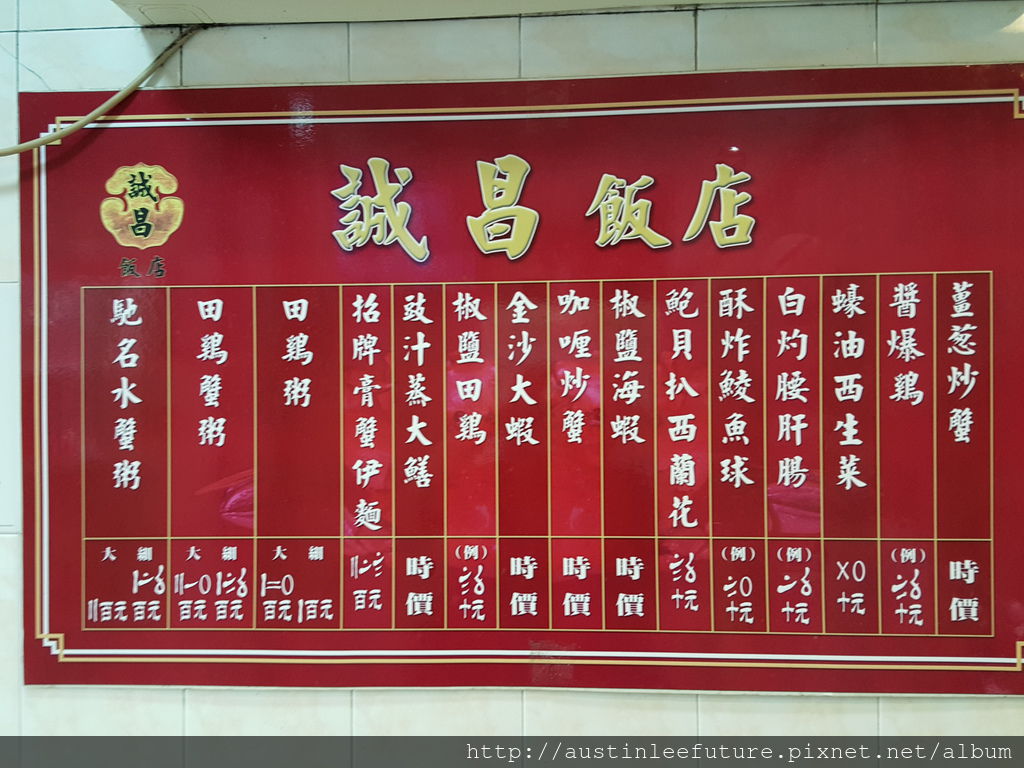 誠昌
飯店
誠昌飯店
薑葱炒蟹
時價
醬爆鷄
(例)
十元
蠔油西生菜
〤〇
十元
白灼腰肝腸
(例)
十元
酥炸鯪魚球
(例)
十元
鮑貝扒西蘭花
十元
椒鹽海蝦
時價
咖喱炒蟹
時價
金沙大蝦
時價
椒鹽田鷄
(例)
十元
豉汁蒸大鱔
時價
招牌膏蟹伊麵
百元
田鷄粥
大 細
〡二〇
百元 〡百元
田鷄蟹粥
大 細
〢一〇
百元 百元
馳名水蟹粥
大 細
〢百元 百元
http://austinleefuture.pixnet.net/album